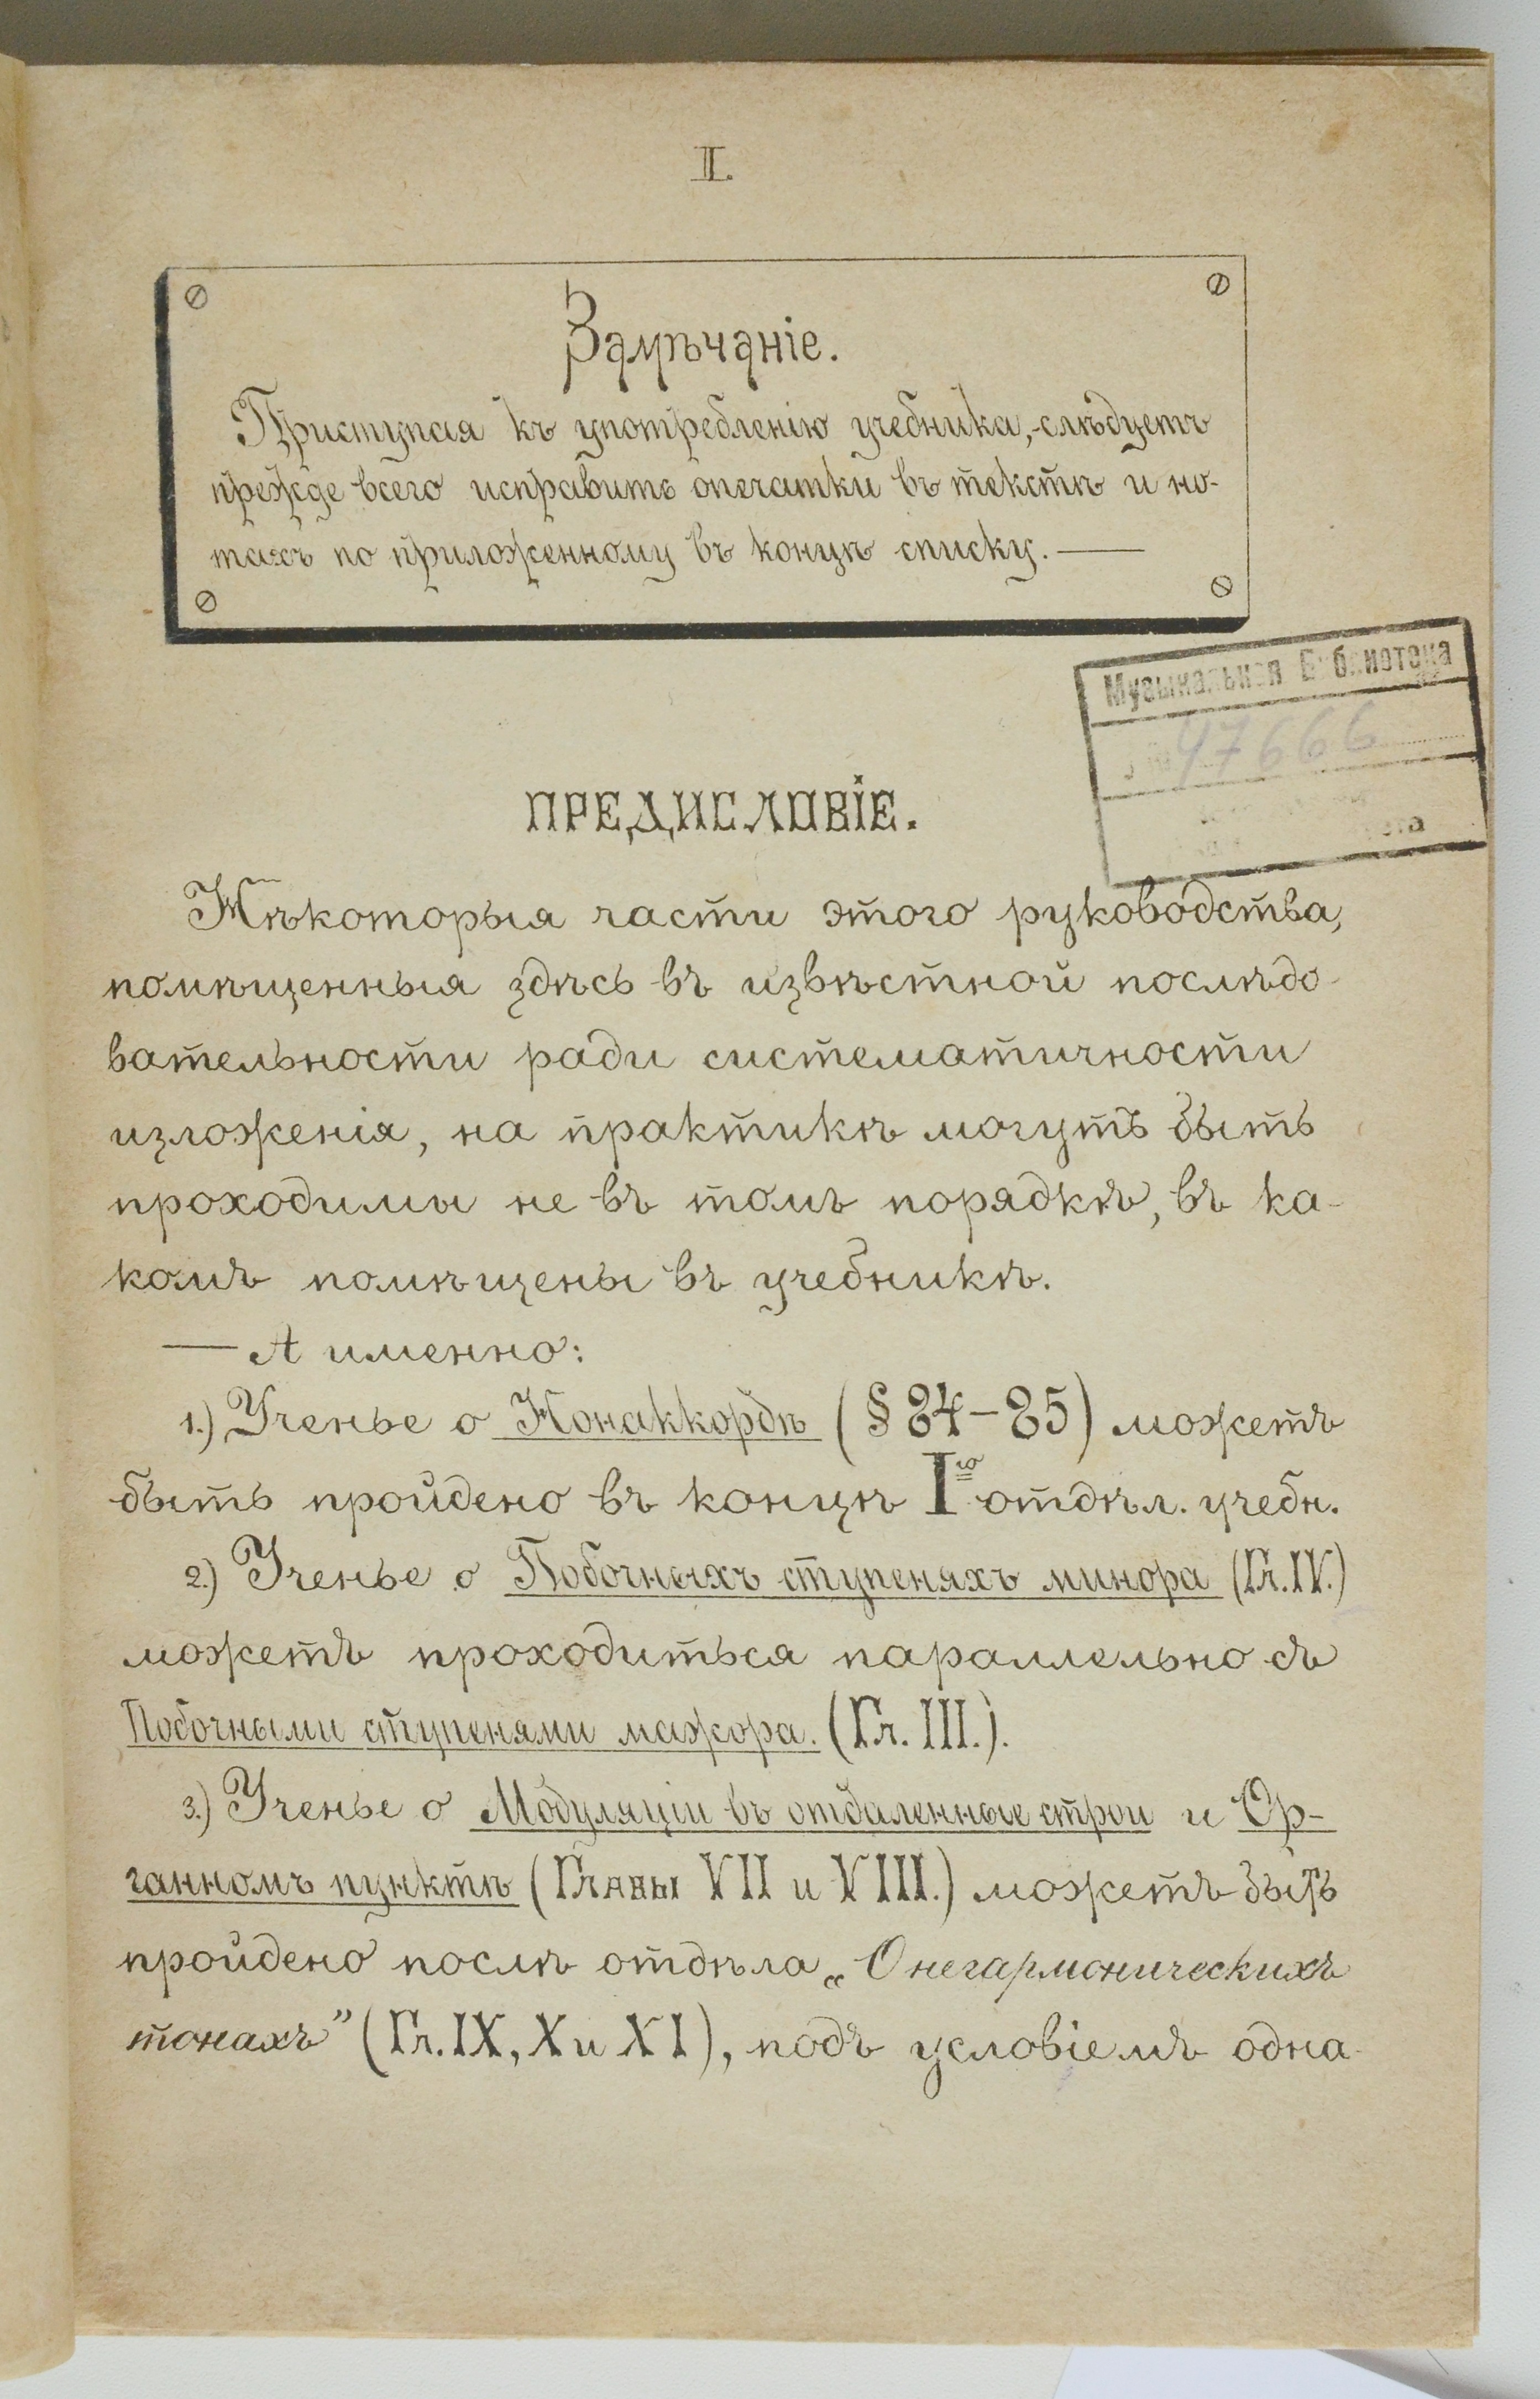 II.
Замѣчаніе.
Приступая къ употребленію учебника,-слѣдуетъ
прежде всего исправить опечатки въ текстѣ и но-
тахъ по приложенному въ концѣ списку. —
Музыкальная Библиотека
47666
ПРЕДИСЛОВІЕ.
Нѣкоторыя части этого руководства,
помѣщенныя здѣсь въ извѣстной послѣдо-
вательности ради систематичности
изложенія, на практикѣ могутъ быть
проходимы не въ томъ порядкѣ, въ ка-
комъ помѣщены въ учебникѣ.
— А именно:
1.) Ученье о Нонаккордѣ (§ 24-25) можетъ
быть пройдено въ концѣ Iго отдѣл. учебн.
2.) Ученье о Побочныхъ ступеняхъ минора (Гл. IV.)
можетъ проходиться параллельно съ
Побочными ступенями мажора. (Гл. III.).
3.) Ученье о Модуляціи въ отдаленные строи и Ор-
ганномъ пунктѣ (Главы VII и VIII.) можетъ быть
пройдено послѣ отдѣла „О негармоническихъ
тонахъ" (Гл. IX, X и XI), подъ условіемъ одна-